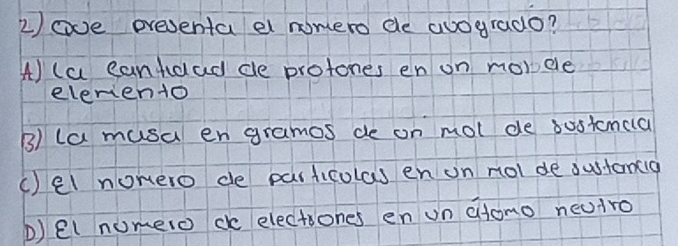 2) Que presenta el número de avogrado?
A) La Cantidad de protones en un mol de
elemento
B) La masa en gramos de un mol de sustancia
C) El número de particulas en un mol de sustancia
D) El número de electrones en un átomo neutro